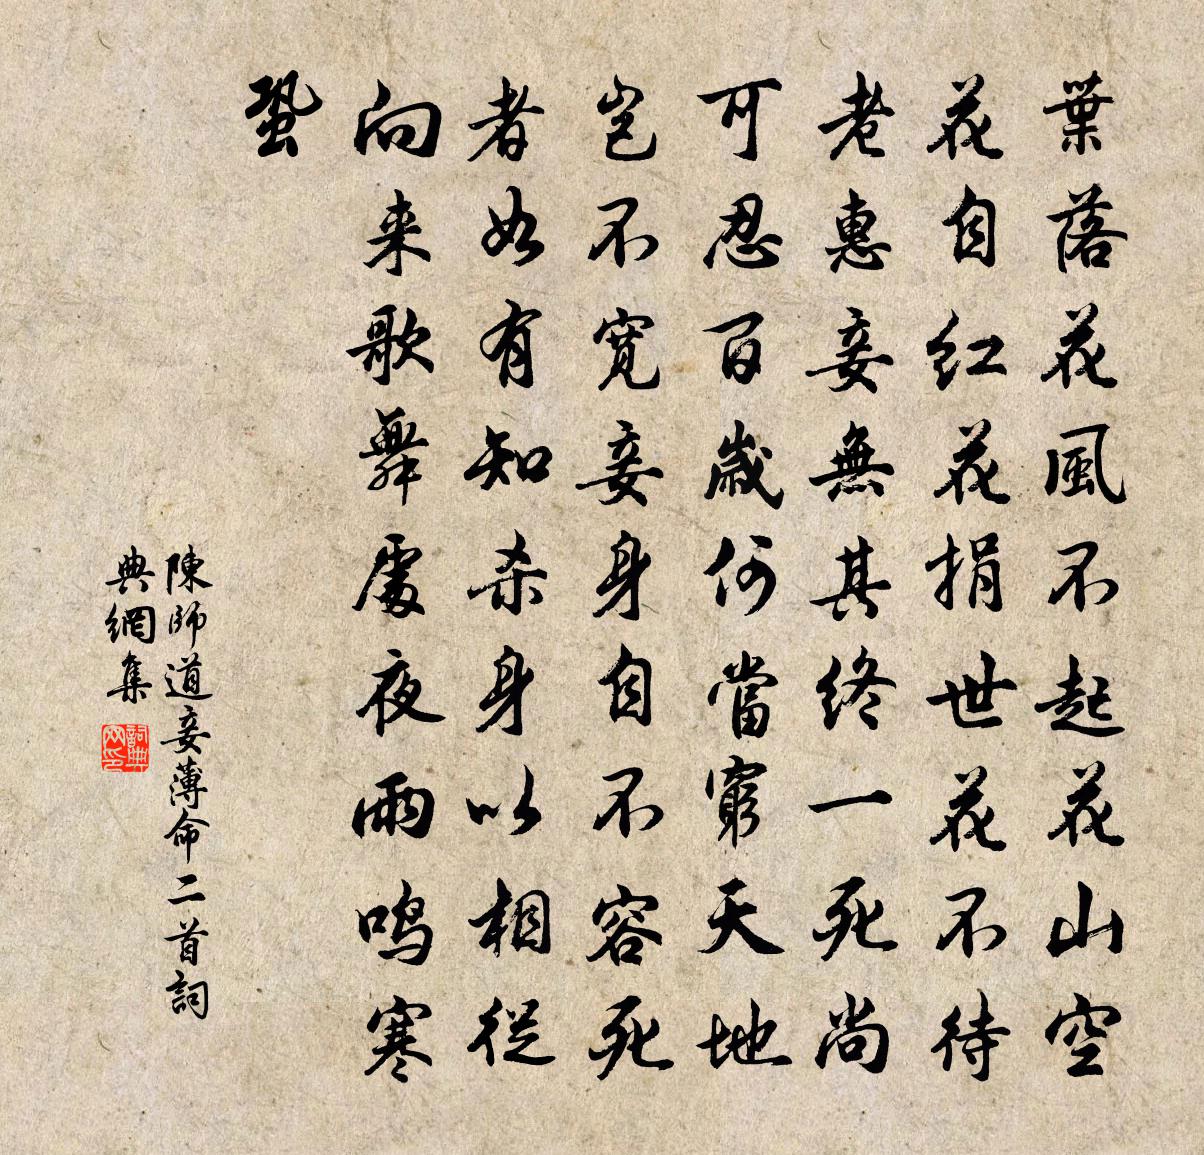 葉落花風不起花山空
花自红花捐世花不待
老惠妾無其终一死尚
可忍百歲何當窮天地
岂不寬妾身自不容死
者如有知杀身以相從
向来歌舞處夜雨鸣寒
蛩
陳師道妾薄命二首詞
典網集
詞典网印